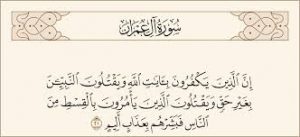 سُورَةُ آلِ عِمْرَان
إِنَّ ٱلَّذِينَ يَكْفُرُونَ بِـَٔايَٰتِ ٱللَّهِ وَيَقْتُلُونَ ٱلنَّبِيِّـۧنَ
بِغَيْرِ حَقٍّ وَيَقْتُلُونَ ٱلَّذِينَ يَأْمُرُونَ بِٱلْقِسْطِ مِنَ
ٱلنَّاسِ فَبَشِّرْهُم بِعَذَابٍ أَلِيمٍ